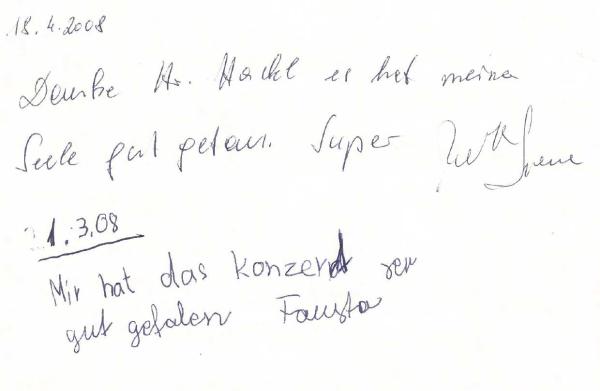 18.4.2008
Danke Hr. Hackl es hat meine
Seele gut getan. Super
1.3.08
Mir hat das Konzert ser
gut gefalen Fausta